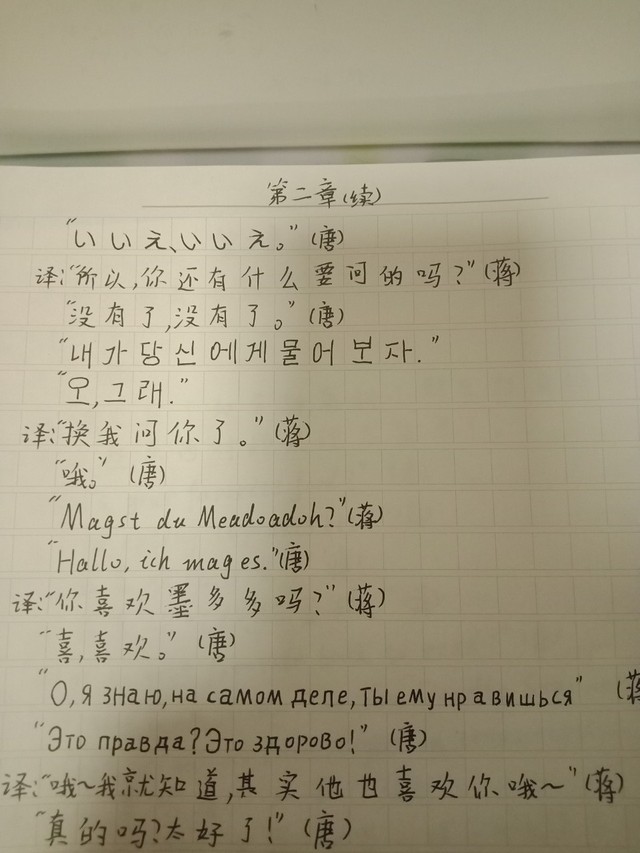 第二章(续)
"いいえ、いいえ。"(唐)
译:"所以,你还有什么要问的吗?"(蒋)
"没有了,没有了。"(唐)
"내가 당신에게 물어보자."
"오,그래."
译:"换我问你了。"(蒋)
"哦。"(唐)
"Magst du Meadoadoh?"(蒋)
"Hallo, ich mag es."(唐)
译:"你喜欢墨多多吗?"(蒋)
"喜,喜欢。"(唐)
"О, я знаю, на самом деле, ты ему нравишься" (蒋
"Это правда? Это здорово!" (唐)
译:"哦~我就知道,其实他也喜欢你哦~"(蒋)
"真的吗?太好了!"(唐)